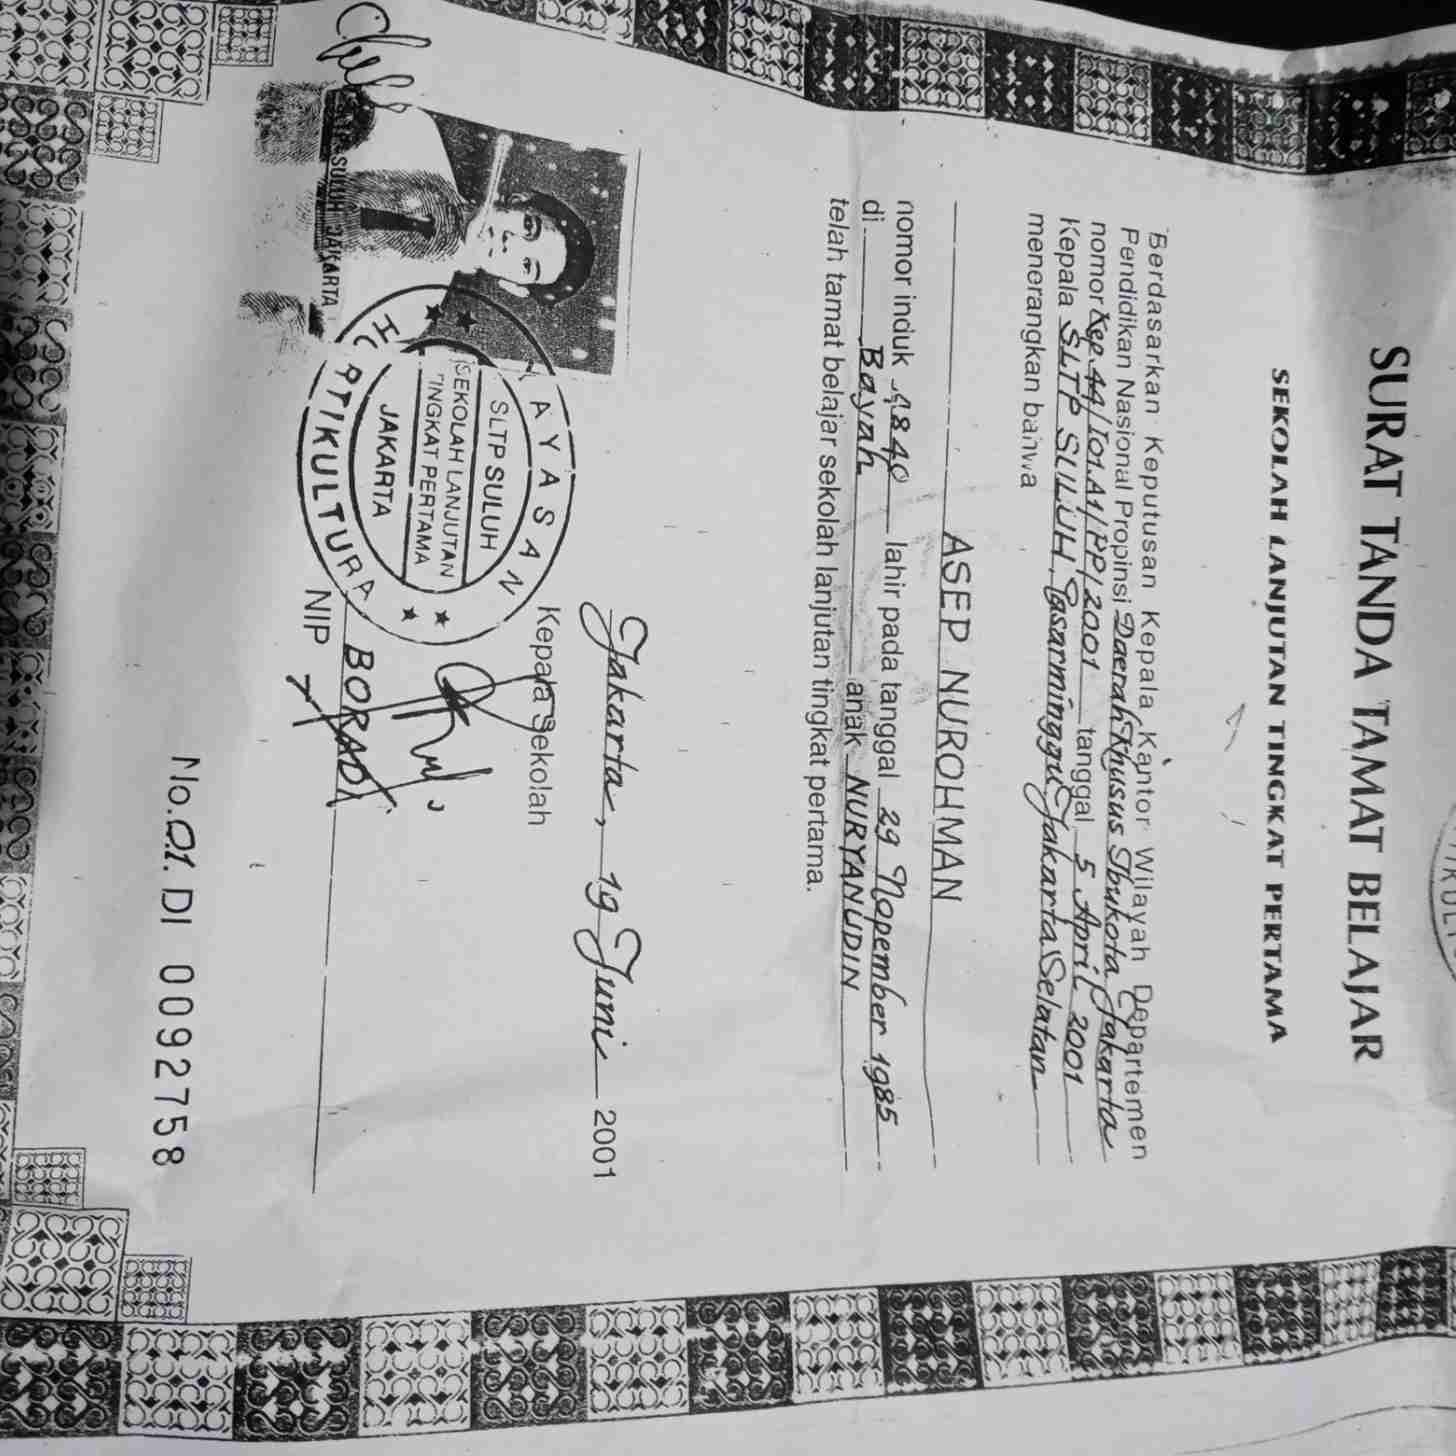 SURAT TANDA TAMAT BELAJAR
SEKOLAH LANJUTAN TINGKAT PERTAMA
Berdasarkan Keputusan Kepala Kantor Wilayah Departemen
Pendidikan Nasional Propinsi Daerah Khusus Ibukota Jakarta
nomor Kep.44/I01.A1/PP/2001 tanggal 5 April 2001
Kepala SLTP SULUH Pasarminggu Jakarta Selatan
menerangkan bahwa
ASEP NUROHMAN
nomor induk 4840 lahir pada tanggal 29 Nopember 1985
di Bayah anak NURYANUDIN
telah tamat belajar sekolah lanjutan tingkat pertama.
Jakarta, 19 Juni 2001
Kepala Sekolah
YAYASAN
SLTP SULUH
SEKOLAH LANJUTAN
TINGKAT PERTAMA
JAKARTA
HORTIKULTURA
SULUH JAKARTA
BORADI
NIP
No.01 DI 0092758